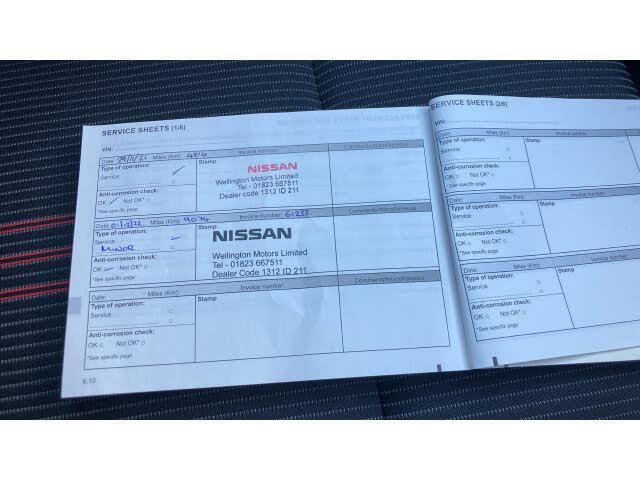 SERVICE SHEETS (1/6)
VIN:
Date: 29/11/21 Miles (Km): 4814 Invoice number: Comments/miscellaneous
Type of operation: Stamp
Service
NISSAN
Wellington Motors Limited
Tel - 01823 667511
Dealer code 1312 ID 211
Anti-corrosion check:
OK Not OK*
*See specific page
Date: 01/12/22 Miles (Km): Invoice number: 61233 Comments/miscellaneous
Type of operation: Stamp
Service
MINOR
NISSAN
Wellington Motors Limited
Tel - 01823 667511
Dealer Code 1312 ID 211
Anti-corrosion check:
OK Not OK*
*See specific page
Date: Miles (Km): Invoice number: Comments/miscellaneous
Type of operation: Stamp
Service
Anti-corrosion check:
OK Not OK*
*See specific page
6.10
SERVICE SHEETS (2/6)
VIN:
Date: Miles (Km): Invoice number:
Type of operation: Stamp
Service
Anti-corrosion check:
OK Not OK*
*See specific page
Date: Miles (Km): Invoice number:
Type of operation: Stamp
Service
Anti-corrosion check:
OK Not OK*
*See specific page
Date: Miles (Km): Invoice number:
Type of operation: Stamp
Service
Anti-corrosion check:
OK Not OK*
*See specific page